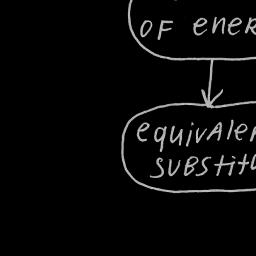 OF ENER
EQUIVALEN
SUBSTITU